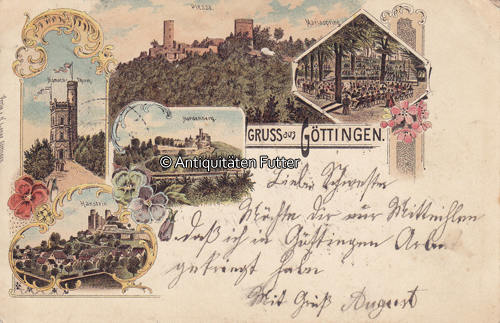 Plesse.
Mariaspring.
Bismarck-Thurm.
Hardenberg.
GRUSS aus GÖTTINGEN.
© Antiquitäten Futter
Hanstein
Liebe Schwester
Möchte dir nur Mittheilen
daß ich in Göttingen
habe
Mit Gruß August